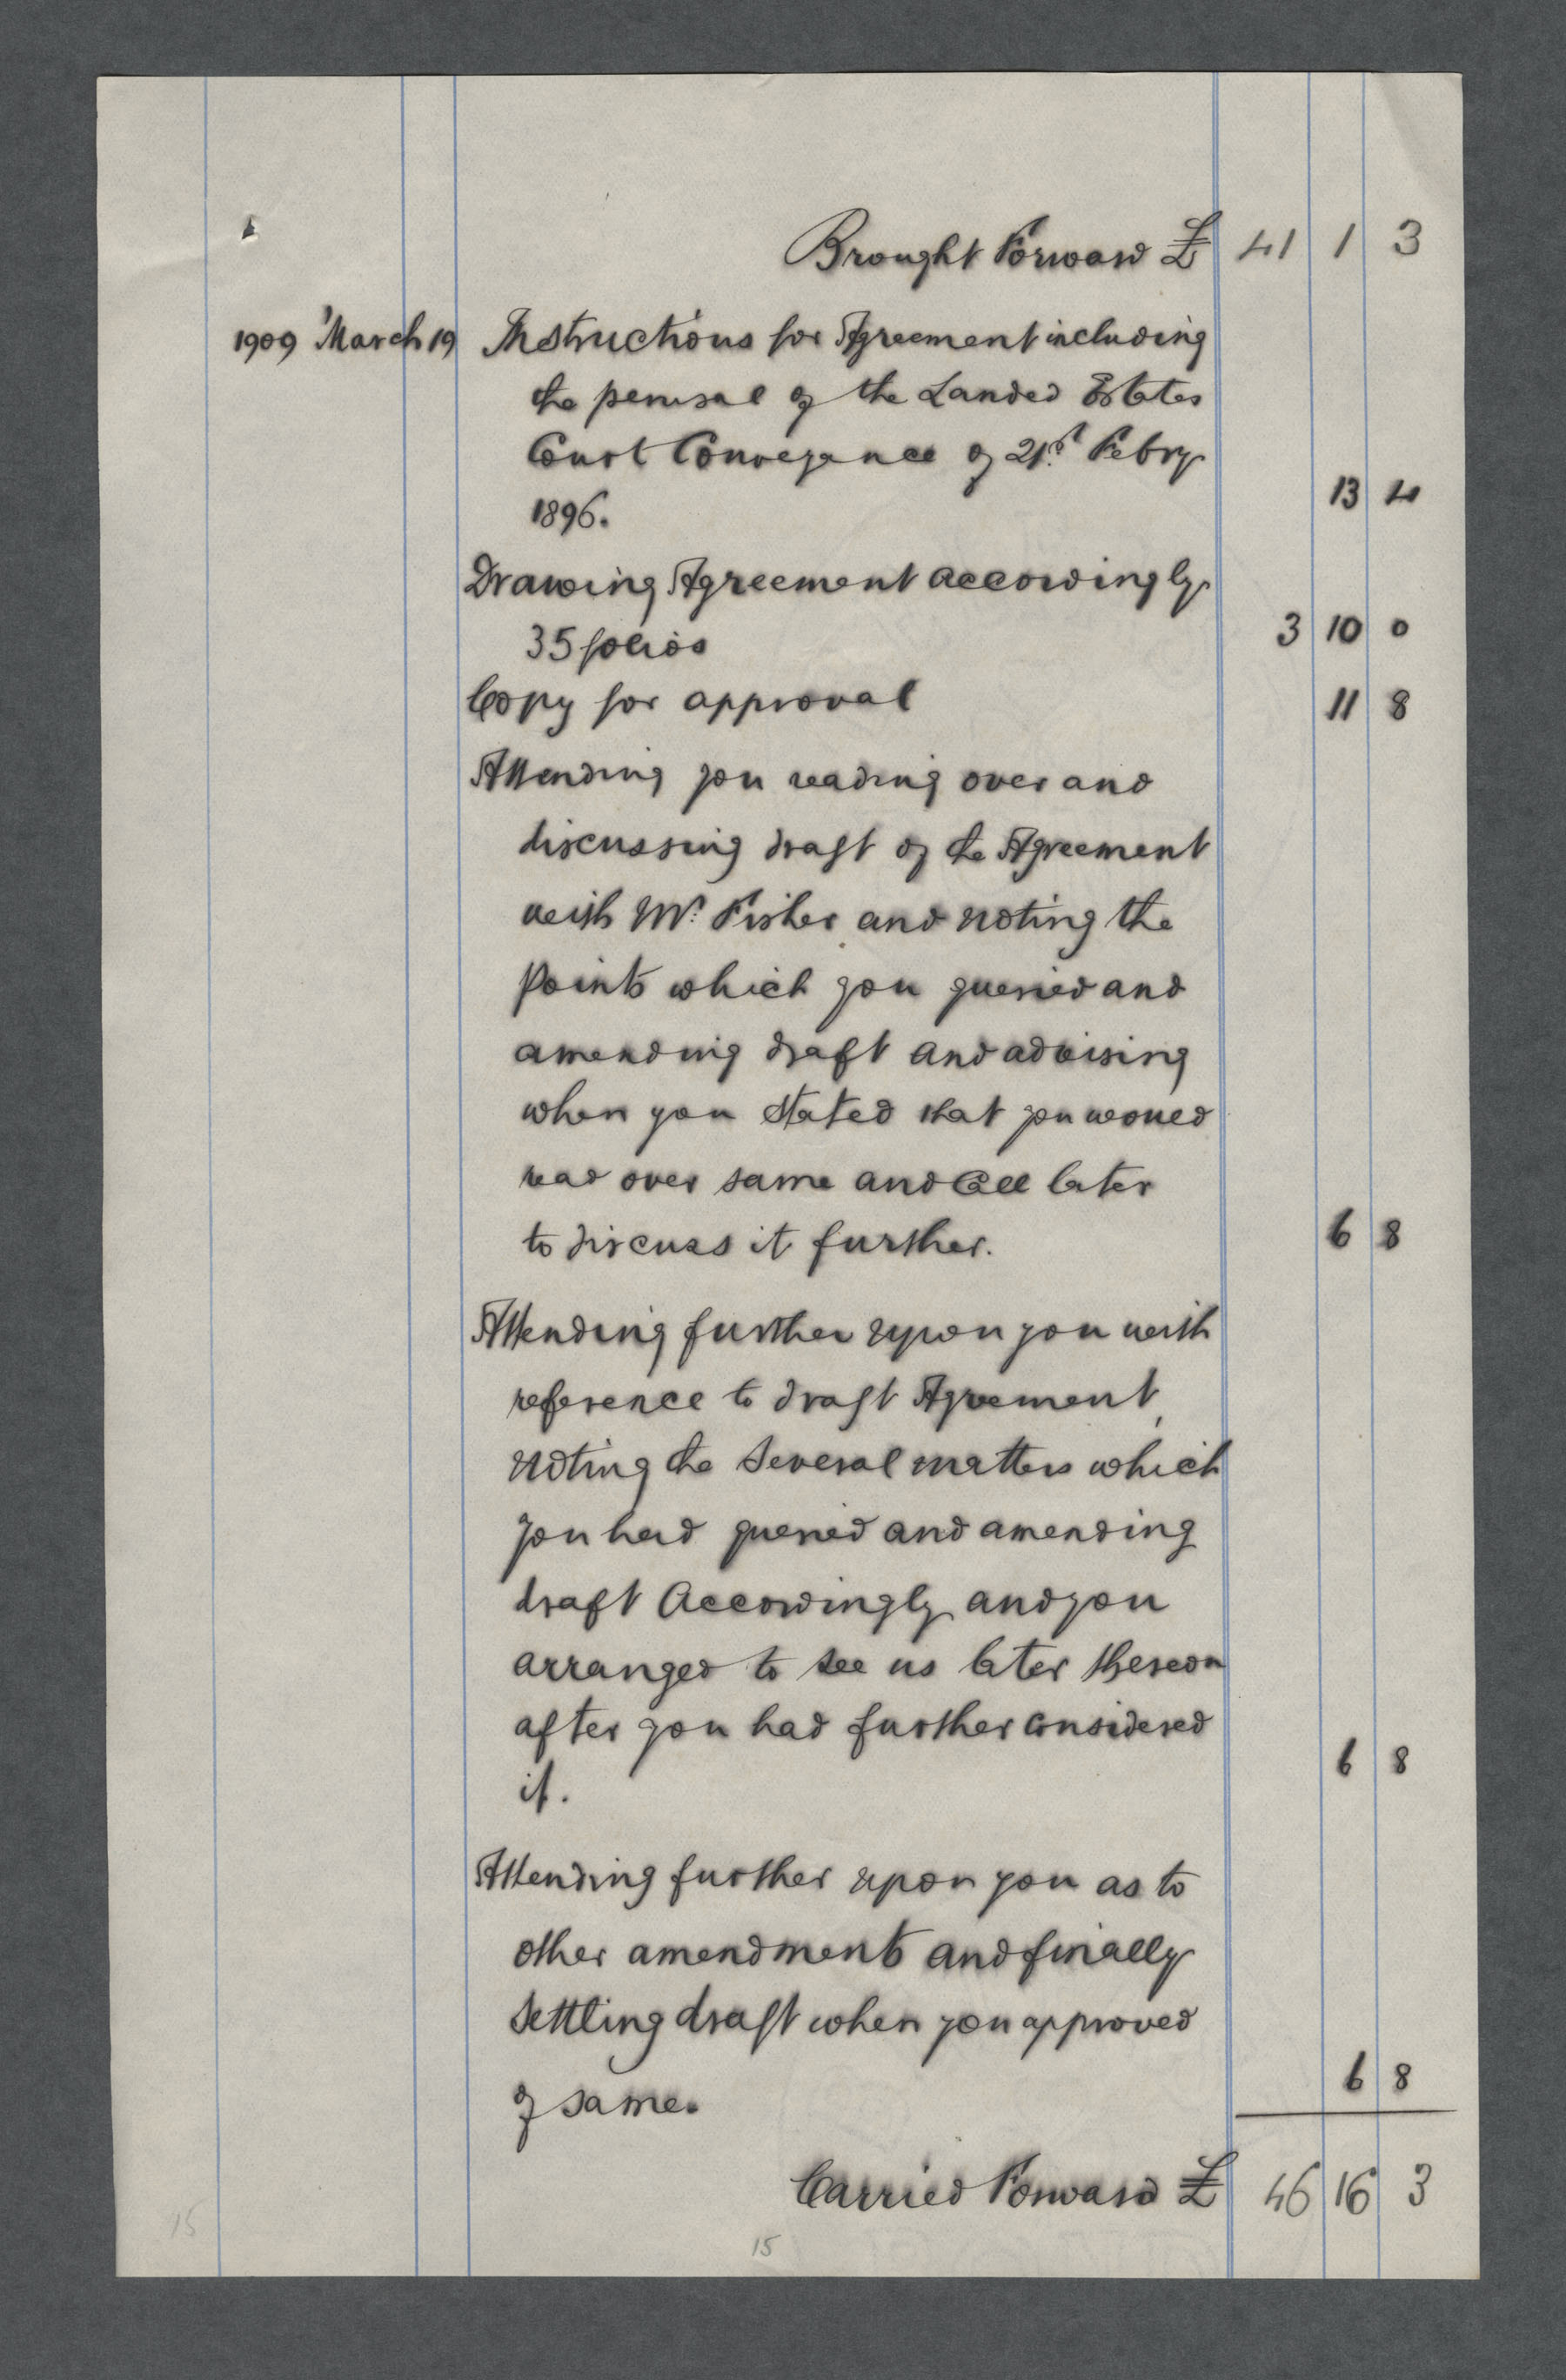 Brought Forward £ 41 1 3
1909 March 19 Instructions for Agreement including
the perusal of the Landed Estates
Court Conveyance of 21st Febry
1896. 13 4
Drawing Agreement accordingly
35 folios 3 10 0
Copy for approval 11 8
Attending you reading over and
discussing draft of the Agreement
with Mr. Fisher and noting the
points which you queried and
amending draft and advising
when you stated that you would
read over same and call later
to discuss it further. 6 8
Attending further upon you with
reference to draft Agreement,
noting the several matters which
you had queried and amending
draft accordingly and you
arranged to see us later thereon
after you had further considered
it. 6 8
Attending further upon you as to
other amendments and finally
settling draft when you approved
of same. 6 8
Carried Forward £ 46 16 3
15
15